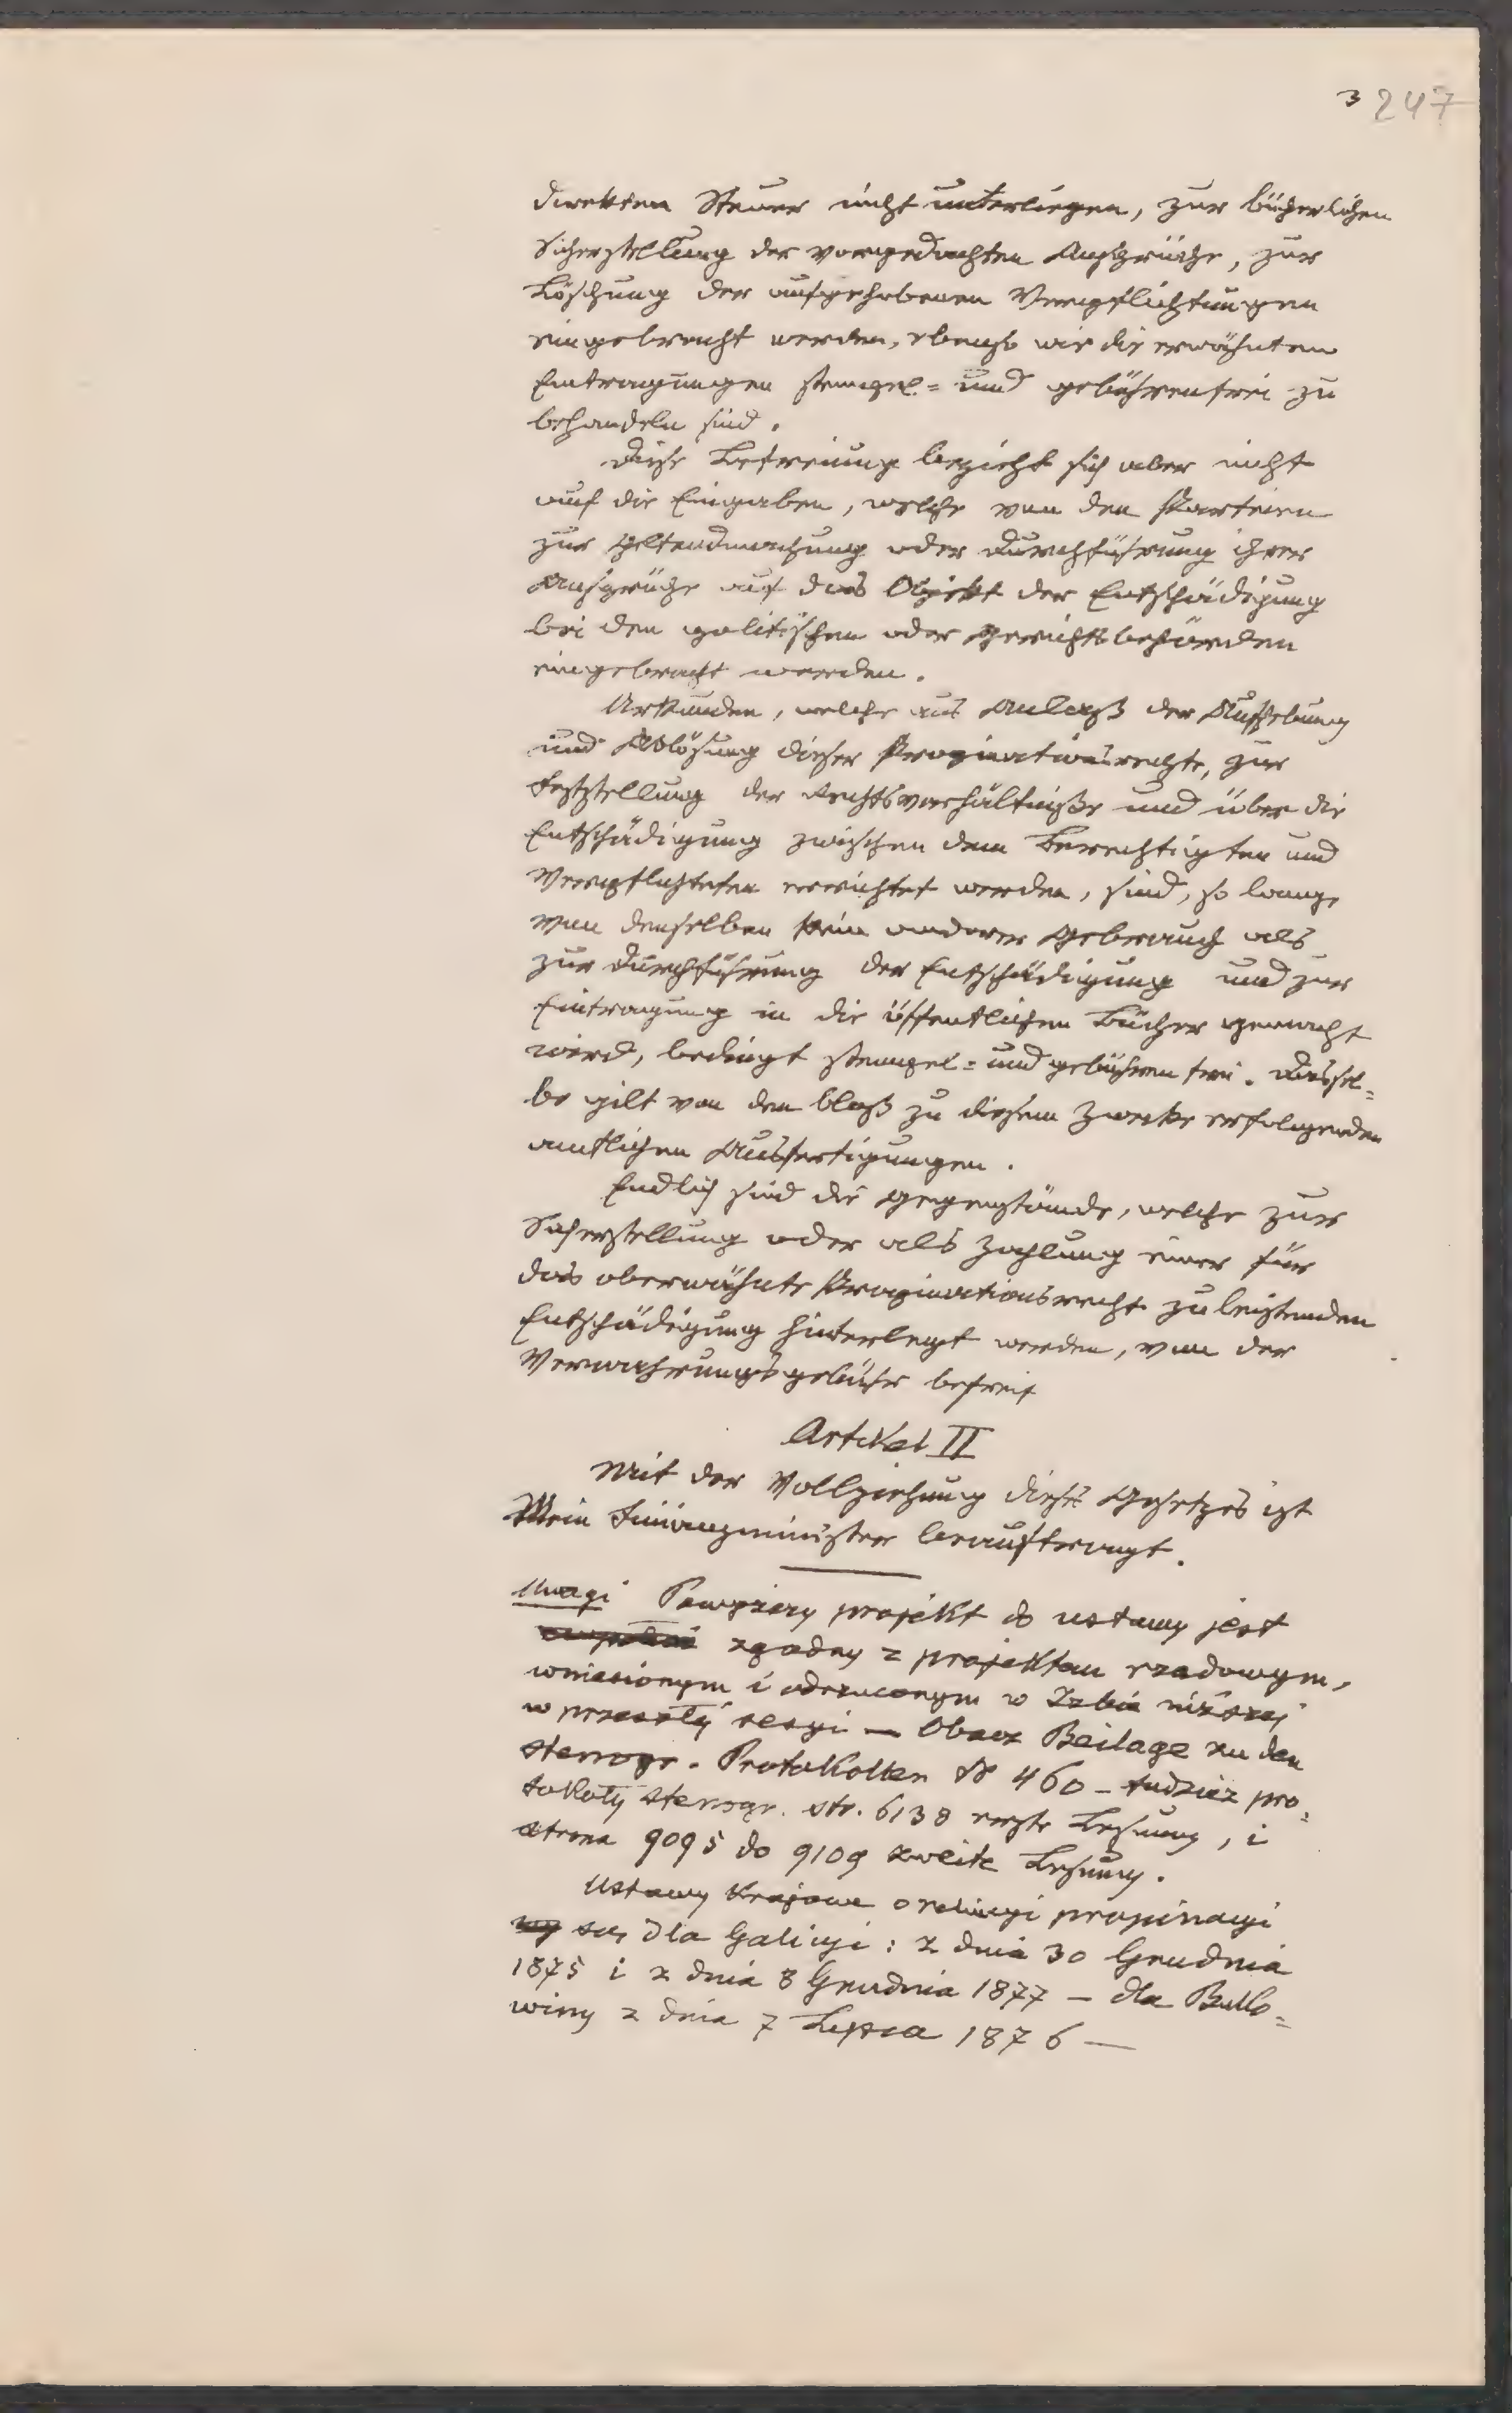 3 247
direkten Steuer nicht unterliegen, zur bücherlichen
Sicherstellung der vorgedachten Ansprüche, zur
Löschung der aufgehobenen Verpflichtungen
eingebracht werden, ebenso wie die erwähnten
Eintragungen stempel= und gebührenfrei zu
behandeln sind.
Diese Befreiung bezieht sich aber nicht
auf die Eingaben, welche von den Parteien
zur Geltendmachung oder Durchführung ihrer
Ansprüche auf das Objekt der Entschädigung
bei den politischen oder Gerichtsbehörden
eingebracht werden.
Urkunden, welche aus Anlaß der Aufhebung
und Ablösung dieser Propinationsrechte, zur
Feststellung der Rechtsverhältniße und über die
Entschädigung zwischen dem Berechtigten und
Verpflichteten errichtet werden, sind, so lange
von denselben kein anderer Gebrauch als
zur Durchführung der Entschädigung und zur
Eintragung in die öffentlichen Bücher gemacht
wird, bedingt stempel= und gebührenfrei. Dassel=
be gilt von den bloß zu diesem Zwecke erfolgenden
amtlichen Ausfertigungen.
Endlich sind die Gegenstände, welche zur
Sicherstellung oder als Zahlung einer für
das oberwähnte Propinationsrecht zu leistenden
Entschädigung hinterlegt werden, von der
Verwahrungsgebühr befreit
Artikel II
Mit der Vollziehung dieses Gesetzes ist
Mein Finanzminister beauftragt.
Uwagi Powyższy projekt do ustawy jest
zgodny z projektem rządowym,
wniesionym i odrzuconym w Izbie niższej
w przeszłej sesyi — Obacz Beilage zu den
stenogr. Protokollen № 460 – tudzież pro=
tokoły stenogr. str. 6138 erste Lesung, i
strona 9095 do 9109 zweite Lesung.
Ustawy krajowe o relucyi propinacyi
są, dla Galicyi: z dnia 30 Grudnia
1875 i z dnia 8 Grudnia 1877 — dla Buko=
winy z dnia 7 Lipca 1876 —